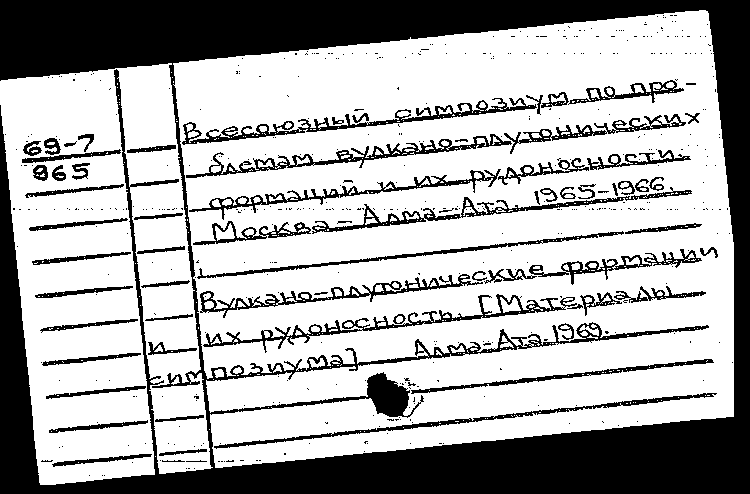 69-7
965
Всесоюзный симпозиум по про-
блемам вулкано-плутонических
формаций и их рудоносности.
Москва-Алма-Ата. 1965-1966.
Вулкано-плутонические формации
и их рудоносность. [Материалы
симпозиума] Алма-Ата. 1969.